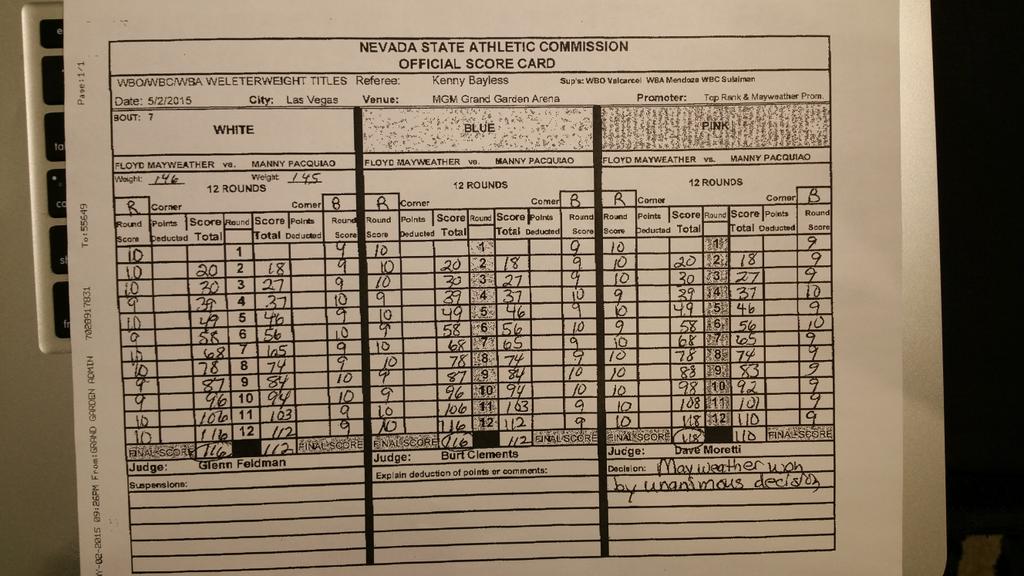 NEVADA STATE ATHLETIC COMMISSION
OFFICIAL SCORE CARD
WBO/WBC/WBA WELETERWEIGHT TITLES Referee: Kenny Bayless Sup's: WBO Valcarcel WBA Mendoza WBC Sulaiman
Date: 5/2/2015 City: Las Vegas Venue: MGM Grand Garden Arena Promoter: Top Rank & Mayweather Prom.
BOUT: 7
WHITE BLUE PINK
FLOYD MAYWEATHER vs. MANNY PACQUIAO FLOYD MAYWEATHER vs. MANNY PACQUIAO FLOYD MAYWEATHER vs. MANNY PACQUIAO
Weight: 146 Weight: 145
12 ROUNDS 12 ROUNDS 12 ROUNDS
R Corner Corner B R Corner Corner B R Corner Corner B
Round Points Score Round Score Points Round Round Points Score Round Score Points Round Round Points Score Round Score Points Round
Score Deducted Total Total Deducted Score Score Deducted Total Total Deducted Score Score Deducted Total Total Deducted Score
10 1 9 10 1 9 10 1 9
10 20 2 18 9 10 20 2 18 9 10 20 2 18 9
10 30 3 27 9 10 30 3 27 9 10 30 3 27 9
9 39 4 37 10 9 39 4 37 10 9 39 4 37 10
10 49 5 46 9 10 49 5 46 9 10 49 5 46 9
9 58 6 56 10 9 58 6 56 10 9 58 6 56 10
10 68 7 65 9 10 68 7 65 9 10 68 7 65 9
10 78 8 74 9 10 78 8 74 9 10 78 8 74 9
9 87 9 84 10 9 87 9 84 10 10 9 83 9
9 96 10 94 10 9 96 10 94 10 10 98 10 92 9
10 106 11 103 9 10 106 11 103 9 10 108 11 101 9
10 116 12 112 9 10 116 12 112 9 10 118 12 110 9
FINAL SCORE 116 112 FINAL SCORE FINAL SCORE 116 112 FINAL SCORE FINAL SCORE 118 110 FINAL SCORE
Judge: Glenn Feldman Judge: Burt Clements Judge: Dave Moretti
Suspensions: Explain deduction of points or comments: Decision: Mayweather won
by unanimous decision
Y-02-2015 09:26PM From:GRAND GARDEN ADMIN 7028917831 To:55649 Page:1/1